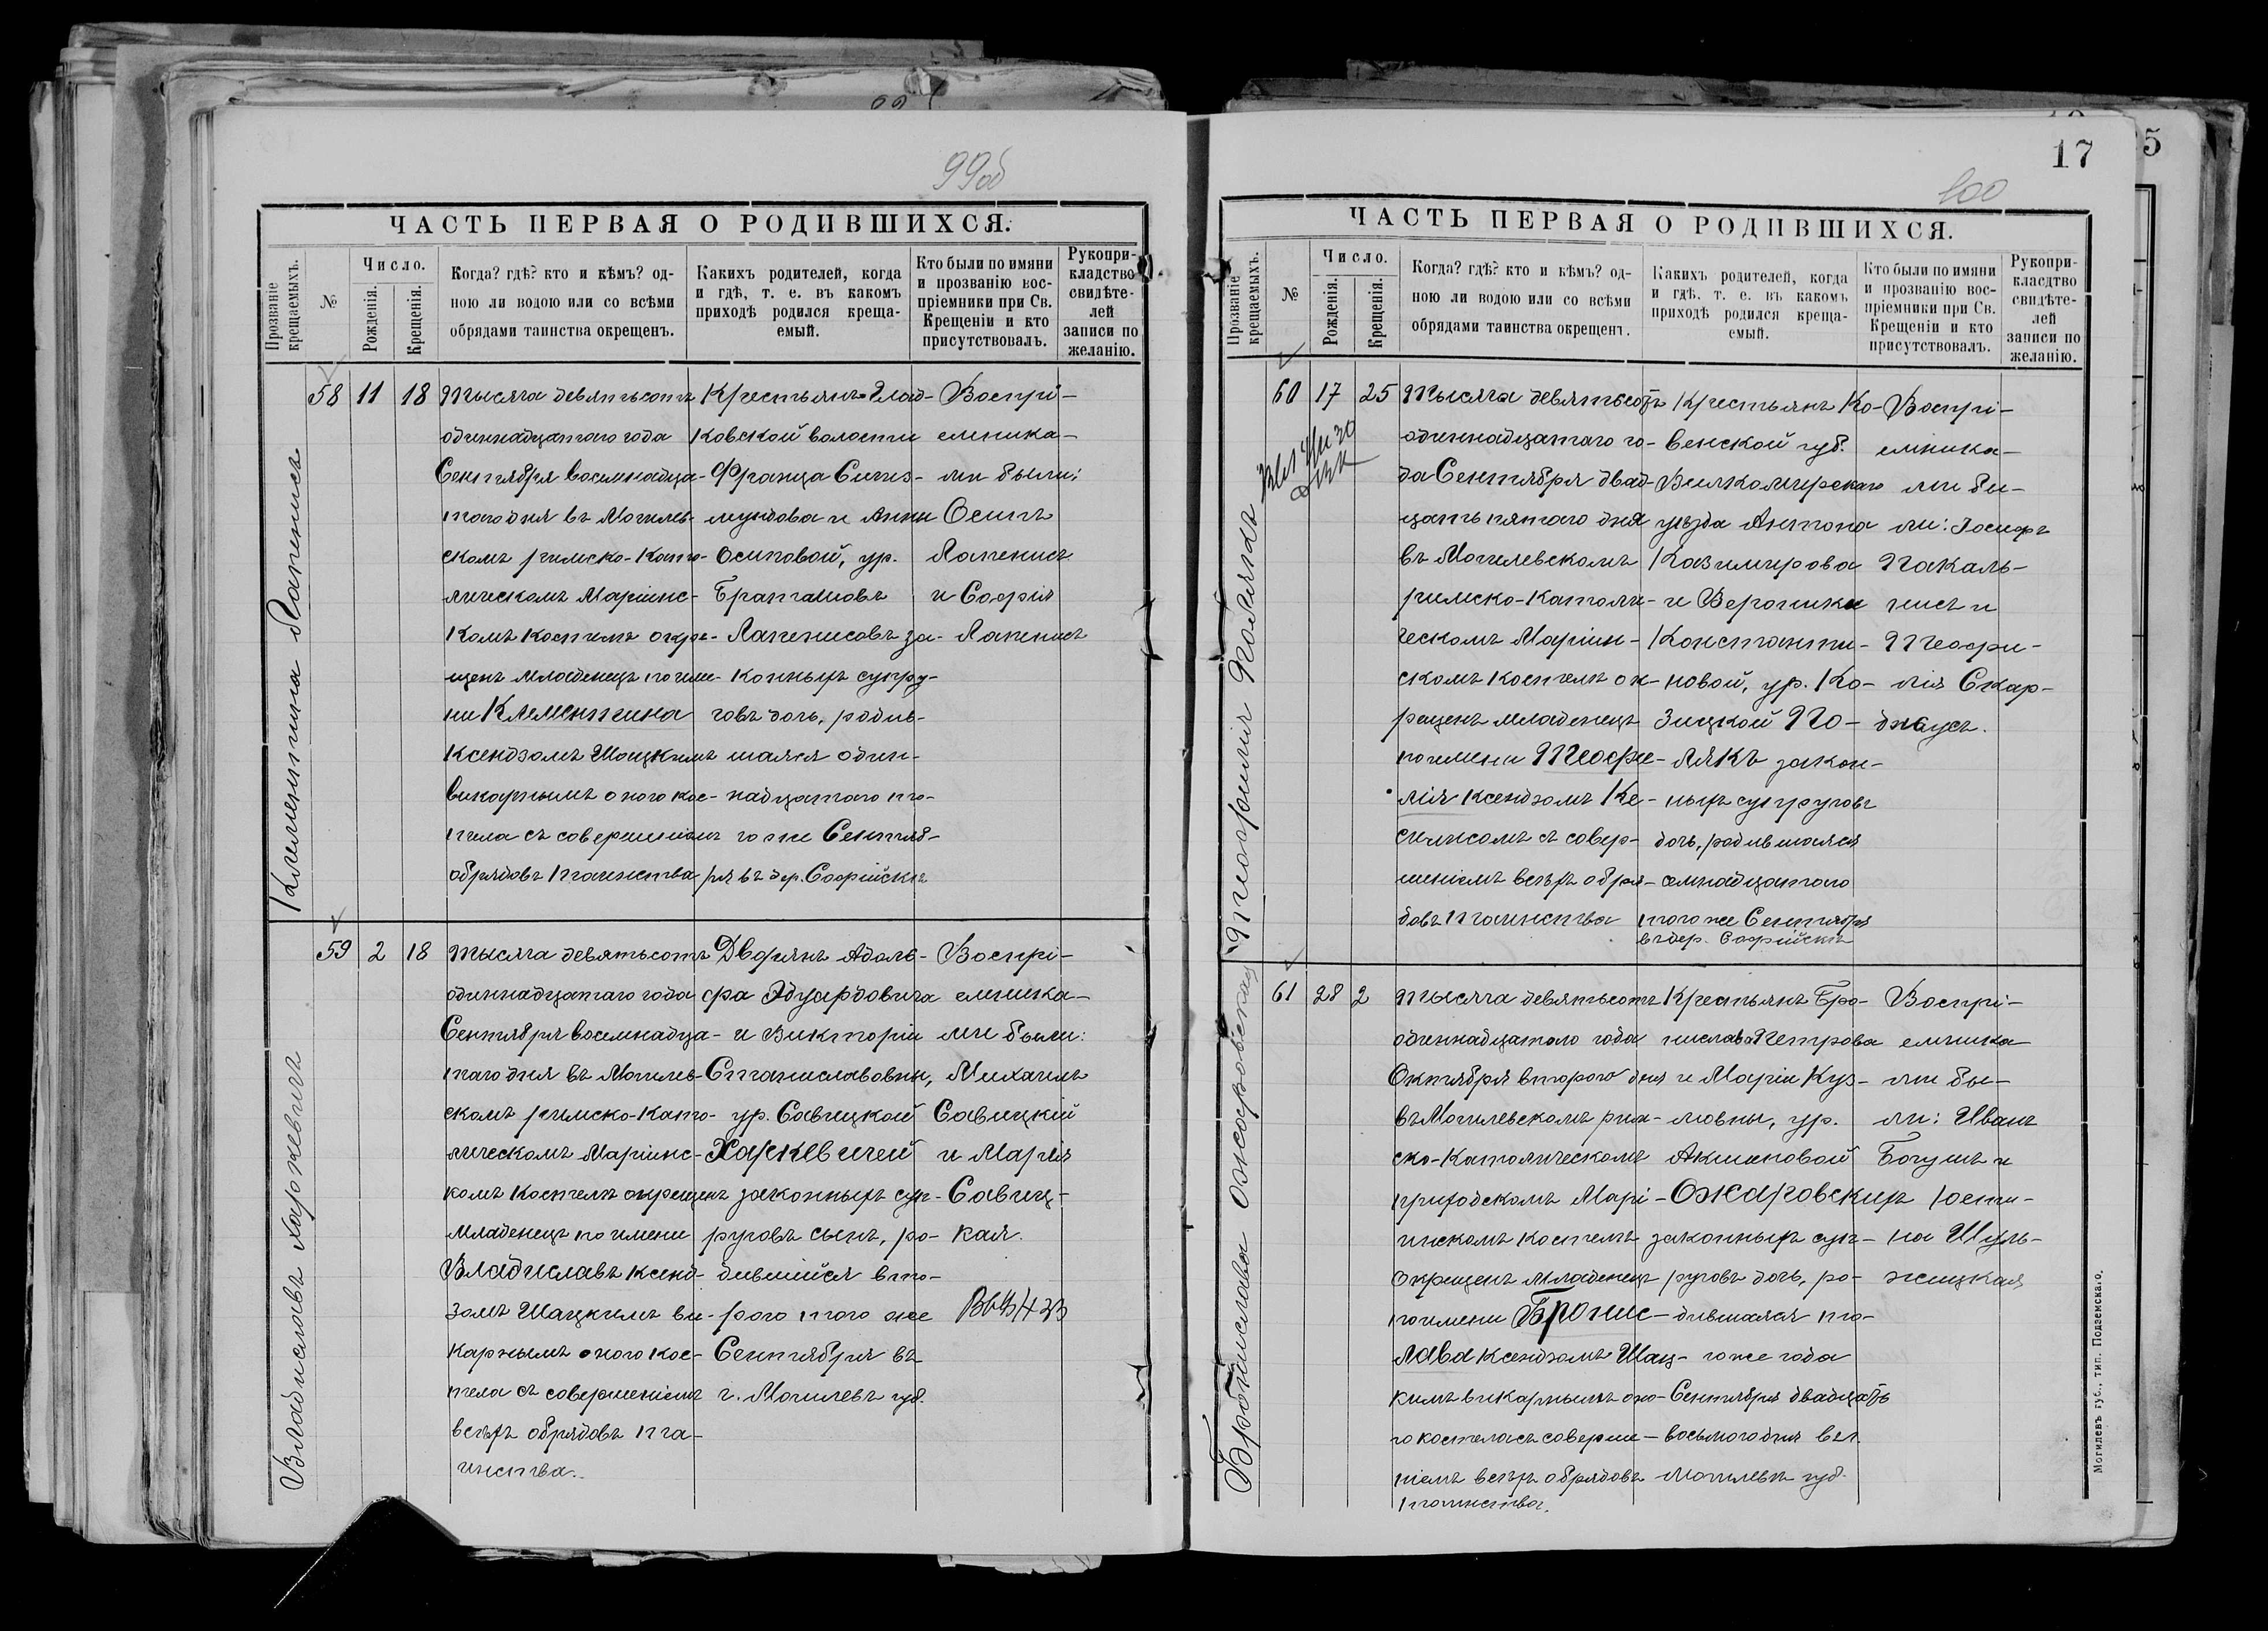 99об
ЧАСТЬ ПЕРВАЯ О РОДИВШИХСЯ.
Прозваніе крещаемыхъ.
№
Число.
Рожденія.
Крещенія.
Когда? гдѣ? кто и кѣмъ? од-
ною ли водою или со всѣми
обрядами таинства окрещенъ.
Какихъ родителей, когда
и гдѣ, т. е. въ какомъ
приходѣ родился креща-
емый.
Кто были по имяни
и прозванію вос-
пріемники при Св.
Крещеніи и кто
присутствовалъ.
Рукопри-
кладство
свидѣте-
лей
записи по
желанію.
Клементина Лапенисъ
58
11
18
Тысяча девятьсотъ
одиннадцатаго года
Сентября восемнадца-
таго дня въ Могилев-
скомъ римско-като-
лическомъ Маріинс-
комъ костелѣ окре-
щенъ младенецъ по име-
ни Клементина
ксендзомъ Шацкимъ
викарнымъ оного кос-
тела съ совершеніемъ
обрядовъ таинства
Крестьянъ Глад-
ковской волости
Франца Сигиз-
мундова и Анны
Осиповой, ур.
Лапенисовъ за-
конныхъ супру-
говъ дочь, родив-
шаяся один-
надцатаго то-
го же Сентяб-
ря въ дер. Софійскѣ
Воспрі-
емника-
ми были:
Осипъ
Лапенисъ
и Софія
Лапенисъ
Владиславъ Харкевичъ
59
2
18
Тысяча девятьсотъ
одиннадцатаго года
Сентября восемнадца-
таго дня въ Могилев-
скомъ римско-като-
лическомъ Маріинс-
комъ костелѣ окрещенъ
младенецъ по имени
Владиславъ ксенд-
зомъ Шацкимъ ви-
карнымъ оного кос-
тела съ совершеніемъ
всѣхъ обрядовъ та-
инства.
Дворянъ Адоль-
фа Эдуардовича
и Викторіи
Станиславовны,
ур. Савицкой
Харкевичей
законныхъ суп-
руговъ сынъ, ро-
дившійся вто-
рого того же
Сентября въ
г. Могилевѣ губ.
Воспрі-
емника-
ми были:
Михаилъ
Савицкій
и Марія
Савиц-
кая.
17
5
100
ЧАСТЬ ПЕРВАЯ О РОДИВШИХСЯ.
Прозваніе крещаемыхъ.
№
Число.
Рожденія.
Крещенія.
Когда? гдѣ? кто и кѣмъ? од-
ною ли водою или со всѣми
обрядами таинства окрещенъ.
Какихъ родителей, когда
и гдѣ, т. е. въ какомъ
приходѣ родился креща-
емый.
Кто были по имяни
и прозванію вос-
пріемники при Св.
Крещеніи и кто
присутствовалъ.
Рукопри-
класдтво
свидѣте-
лей
записи по
желанію.
Теофилія Полякъ
60
17
25
Тысяча девятьсотъ
одиннадцатаго го-
да Сентября двад-
цать пятаго дня
въ Могилевскомъ
римско-католи-
ческомъ Маріин-
скомъ костелѣ ок-
рещенъ младенецъ
по имени Теофи-
лія ксендзомъ
съ совер-
шеніемъ всѣхъ обря-
довъ таинства
Крестьянъ Ко-
венской губ.
Вилкомирскаго
уѣзда Антона
Казимирова
и Вероники
Константи-
новой, ур. Ко-
зицкой По-
лякъ закон-
ныхъ супруговъ
дочь, родившаяся
семнадцатаго
того же Сентября
въ дер. Софійскѣ
Воспрі-
емника-
ми бы-
ли: Іосифъ
Пакаль-
нисъ и
Теофи-
лія Скар-
Бронислава Ожаровская
61
28
2
Тысяча девятьсотъ
одиннадцатаго года
Октября второго дня
въ Могилевскомъ рим-
ско-католическомъ
приходскомъ Марі-
инскомъ костелѣ
окрещенъ младенецъ
по имени Бронис-
лава ксендзомъ Шац-
кимъ викарнымъ оно-
го костела съ соверше-
ніемъ всѣхъ обрядовъ
таинства.
Крестьянъ Бро-
нислава Петрова
и Маріи Куз-
ьмовны, ур.
Акимовой
Ожаровскихъ
законныхъ суп-
руговъ дочь, ро-
дившаяся то-
го же года
Сентября двадцать
восьмого дня въ г.
Могилевѣ губ.
Воспрі-
емника
ми бы-
ли: Иванъ
Богушъ и
Юсти-
на Шуль-
жицкая
Могилевъ губ., тип. Подземскаго.